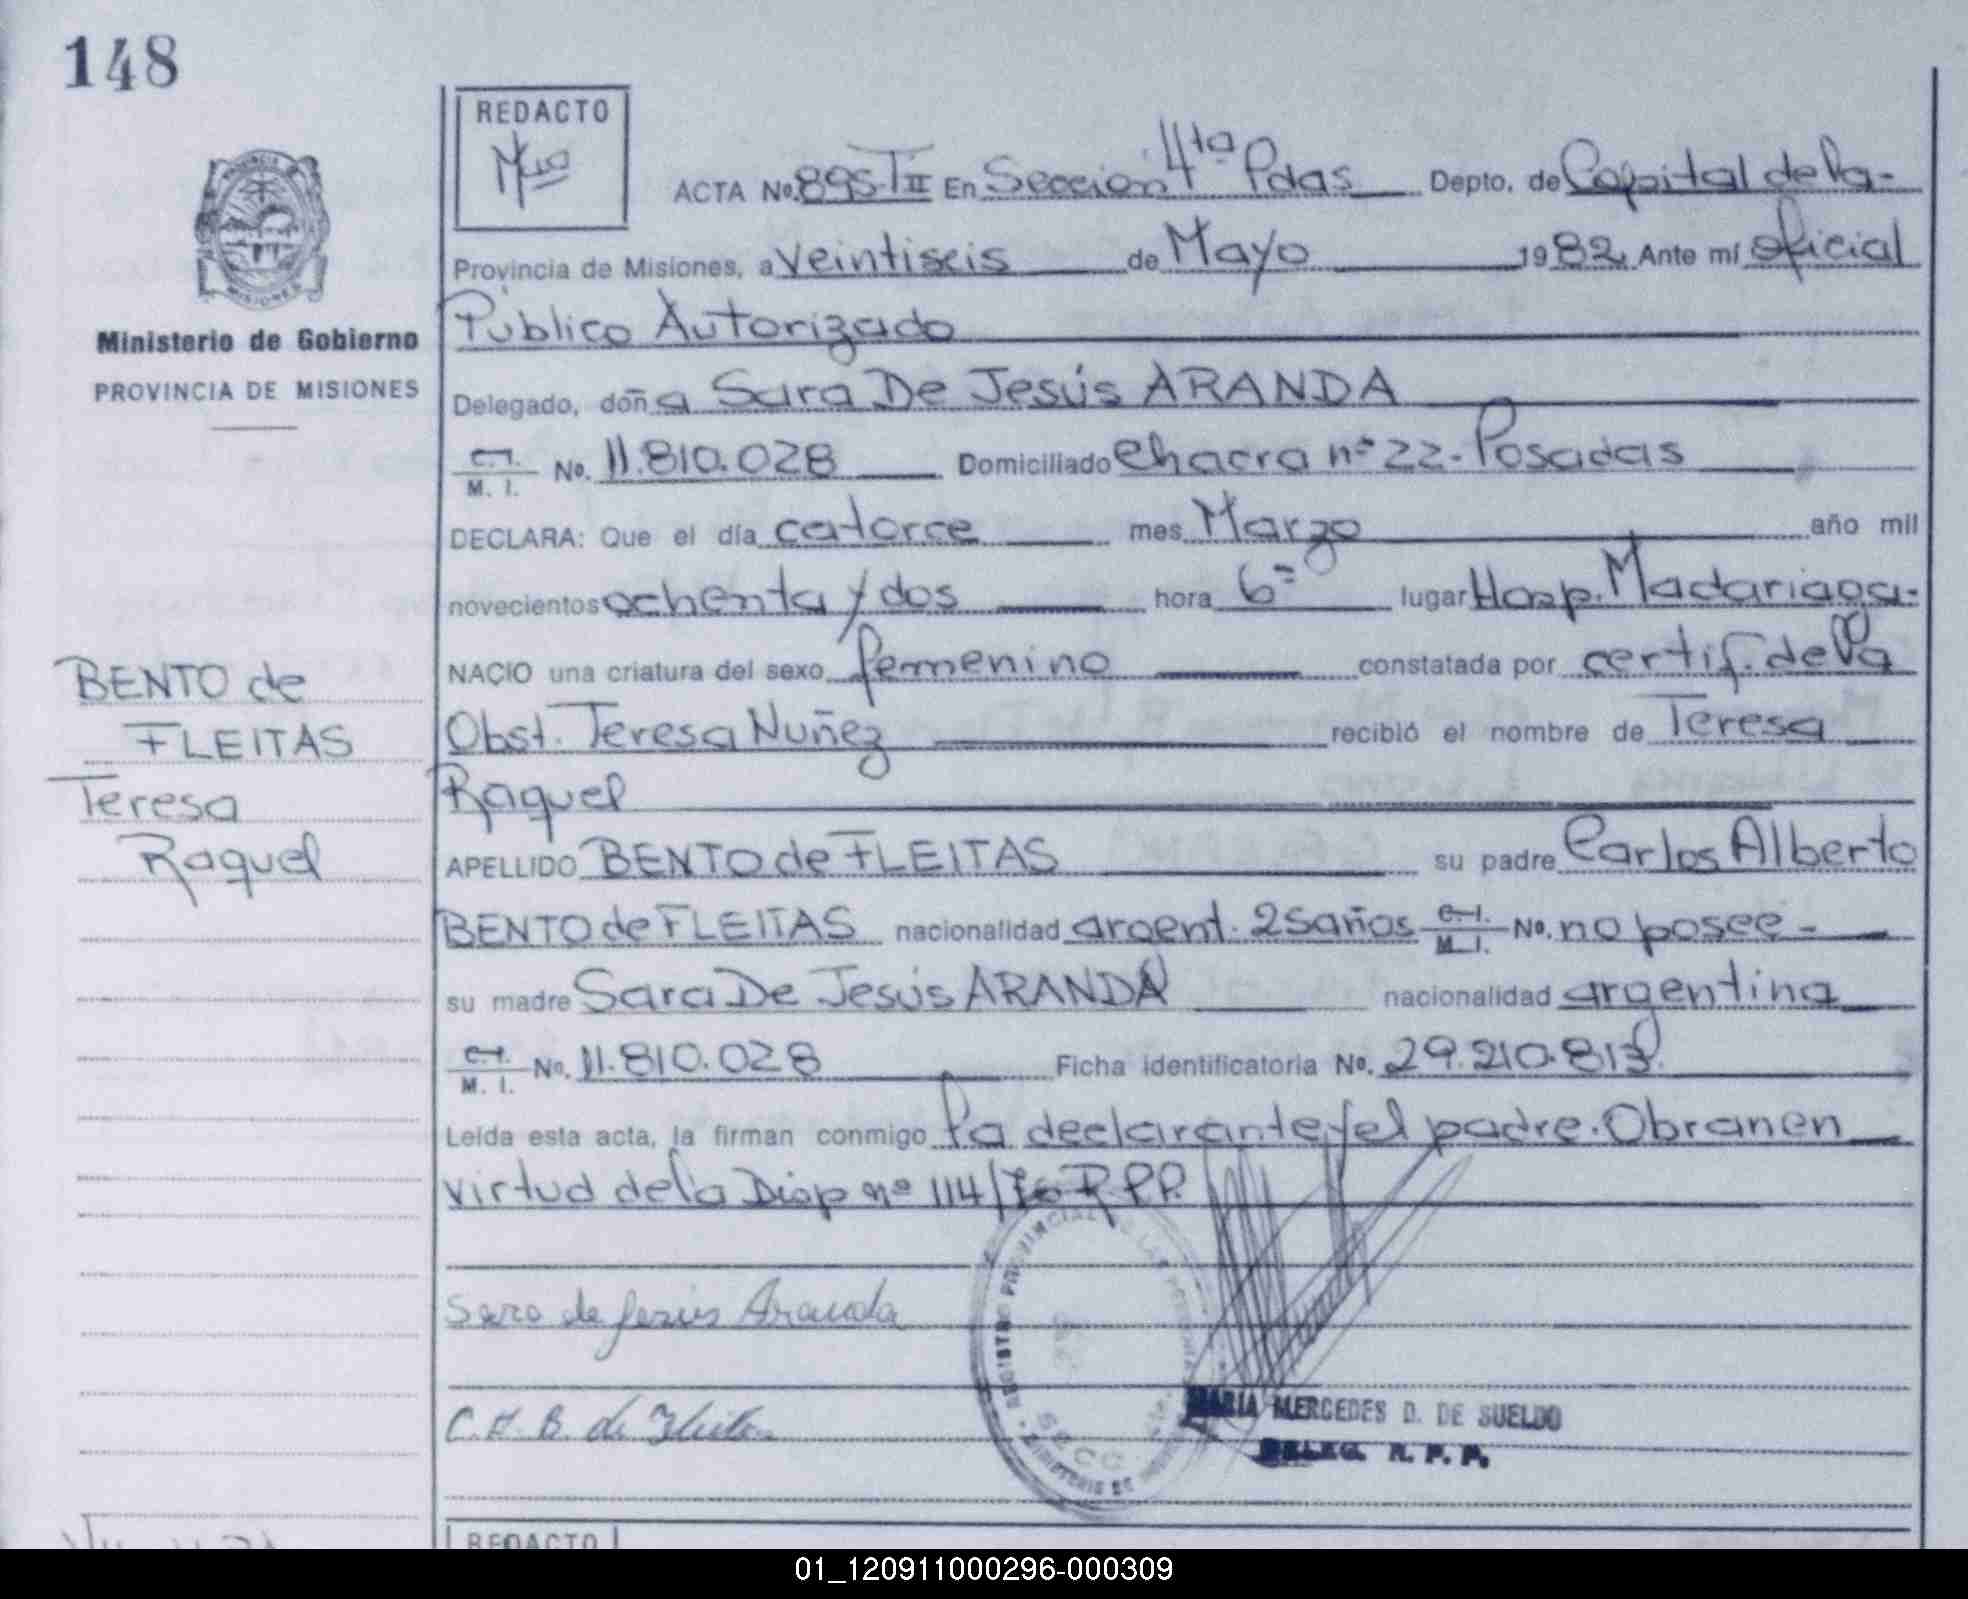 148
REDACTO
ACTA No. 895-TIII En Sección 4ta Pdas Depto. de Capital de la-
Provincia de Misiones, a veintiseis de Mayo 1982 Ante mí Oficial
Público Autorizado
Ministerio de Gobierno
PROVINCIA DE MISIONES
Delegado, doña Sara De Jesús ARANDA
C.I. M. I. No. 11.810.028 Domiciliado Chacra nº 22- Posadas
DECLARA: Que el día catorce mes Marzo año mil
novecientos ochenta y dos hora 6= lugar Hosp. Madariaga-
NACIO una criatura del sexo femenino constatada por certif. de la
Obst. Teresa Nuñez recibió el nombre de Teresa
Raquel
BENTO de
FLEITAS
Teresa
Raquel
APELLIDO BENTO de FLEITAS su padre Carlos Alberto
BENTO de FLEITAS nacionalidad argent. 25 años C.I. M. I. No. no posee-
su madre Sara De Jesús ARANDA nacionalidad argentina
C.I. M. I. No. 11.810.028 Ficha identificatoria No. 29.210.813
Leída esta acta, la firman conmigo la declarante y el padre. Obran en
virtud de la Disp nº 114/76 R.P.P.
Sara de Jesús Aranda
C. A. B. de Fleitas
REGISTRO PROVINCIAL DE LAS
MINISTERIO DE
SECC
MARIA MERCEDES D. DE SUELDO
DELEG. R. P. P.
REDACTO
01_120911000296-000309